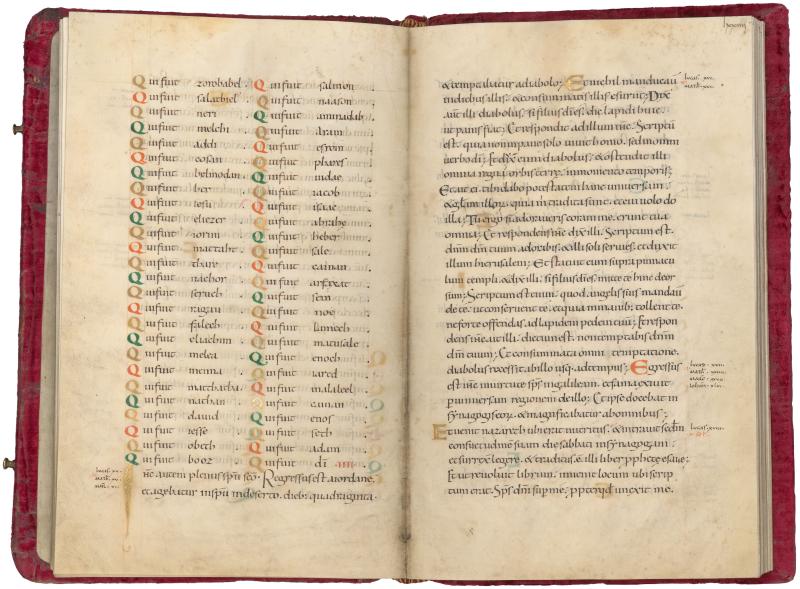 Qui fuit zorobabel.
Qui fuit salathiel.
Qui fuit neri.
Qui fuit melchi.
Qui fuit addi.
Qui fuit cosan.
Qui fuit helmodan.
Qui fuit her.
Qui fuit iesu.
Qui fuit eliezer.
Qui fuit iorim.
Qui fuit matthat.
Qui fuit
Qui fuit nachor.
Qui fuit seruch.
Qui fuit ragau.
Qui fuit falech.
Qui fuit eliachim.
Qui fuit melea.
Qui fuit menna.
Qui fuit matthatha.
Qui fuit nathan.
Qui fuit dauid.
Qui fuit iesse.
Qui fuit obeth.
Qui fuit booz.
Qui fuit salmon.
Qui fuit naason.
Qui fuit aminadab.
Qui fuit aram.
Qui fuit esrom.
Qui fuit phares.
Qui fuit iudae.
Qui fuit iacob.
Qui fuit isaac.
Qui fuit abrahe.
Qui fuit heber.
Qui fuit sale.
Qui fuit cainan.
Qui fuit arfaxat.
Qui fuit sem.
Qui fuit noe.
Qui fuit lamech.
Qui fuit matusale.
Qui fuit enoch.
Qui fuit iared.
Qui fuit malaleel.
Qui fuit cainan.
Qui fuit enos.
Qui fuit seth.
Qui fuit adam.
Qui fuit di.
autem plenus spu sco. Regressus est a iordane.
et agebatur in spu in deserto. dieb; quadraginta.
& temptabatur a diabolo; Et nihil manducauit
in diebus illis. & consummatis illis esuriit; Dix
aut illi diabolus. si filius di es. dic lapidi huic.
ut panis fiat; Et respondit ad illum ihs. Scriptu
est. quia non in pane solo uiuit homo. sed in omni
uerbo di; Et duxit eum diabolus. & ostendit illi
omnia regna orbis terre. in momento temporis;
Et ait ei. tibi dabo potestatem hanc uniuersam.
& gloriam illorum; quia m tradita sunt. et cui uolo do
illa; Tu ergo si adoraueris coram me. erunt tua
omnia; Et respondens ihs. dix illi. Scriptum est.
dnm dm tuum adorabis. & illi soli seruies; et duxit
illum hierusalem; Et statuit eum supra pinnacu
lum templi. & dix illi. si filius di es. mitte te hinc deor
sum; Scriptum est enim. quod angelis suis mandau
de te. ut conseruent te. et quia in manib; tollent te.
ne forte offendas ad lapidem pedem tuu; Et respon
dens ihs. ait illi. dictum est. non temptabis dnm
dm tuum; Et consummata omni temptatione.
diabolus recessit ab illo usq; ad tempus; Egressus
est ihs in uirtute sps in galileam. et fama exiuit
per uniuersam regionem de illo; Et ipse docebat in
synagogis eoru. & magnificabatur ab omnibus;
Et uenit nazareth ubi erat nutritus. & intrauit secdm
consuetudine suam die sabbati in synagogam;
et surrex legere. & traditus e illi liber pphete esaie;
Et ut reuoluit librum. inuenit locum ubi scrip
tum erat. Sps dni sup me. ppter qd unexit me.